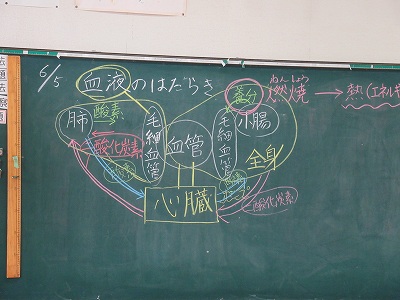 6/5
血液のはたらき
養分
ねんしょう
燃焼 → 熱(エネルギ
肺
酸素
二酸化炭素
毛細血管
血管
毛細血管
小腸
全身
心臓
二酸化炭素